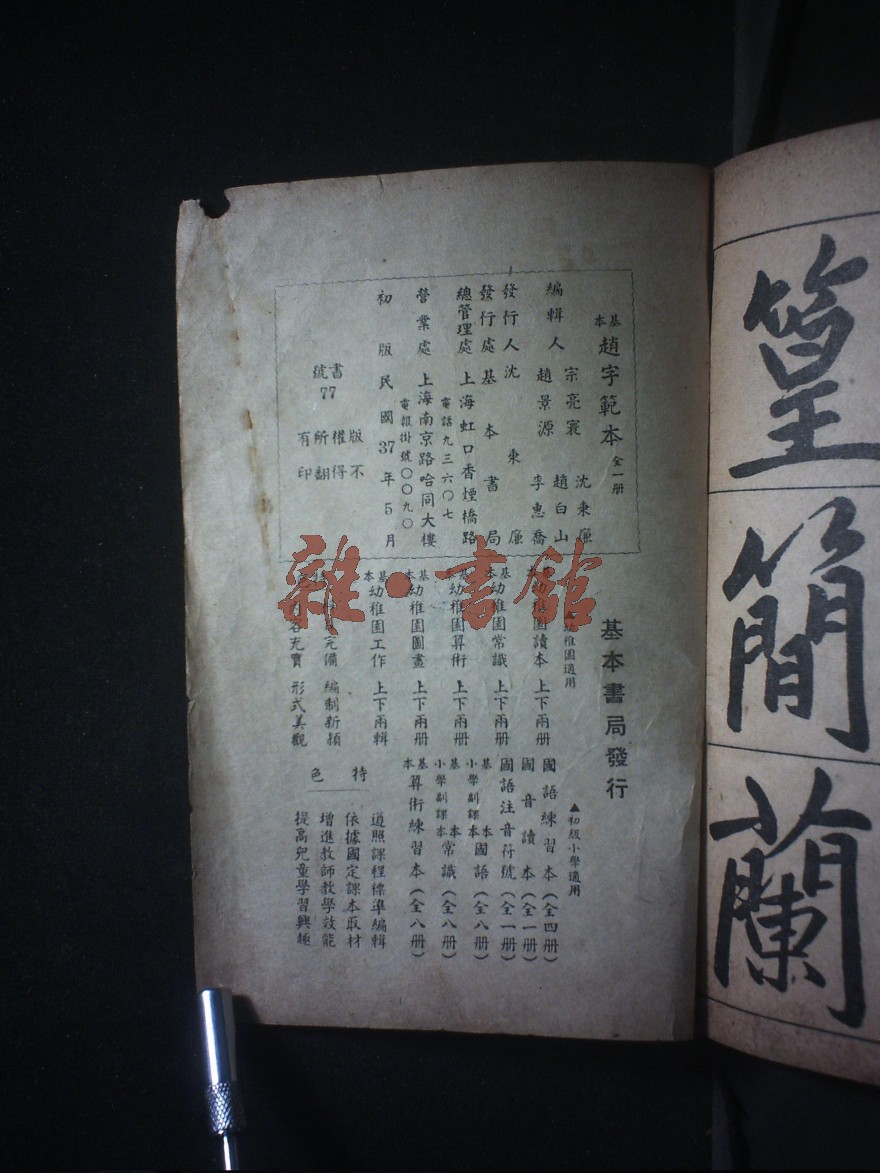 篁
簡
蘭
基本 趙字範本 全一册
編輯人 宗亮寰 沈秉廉
趙景源 趙白山
李惠喬
發行人 沈秉廉
發行處 基本書局
總管理處 上海虹口香煙橋路
電話九三六〇七
營業處 上海南京路哈同大樓
電報掛號〇〇九〇
初版 民國37年5月
書號
77
版權所有
不得翻印
雜·書館
基本書局發行
▲幼稚園適用
幼稚園讀本 上下兩册
基本幼稚園常識 上下兩册
基本幼稚園算術 上下兩册
基本幼稚園圖畫 上下兩册
基本幼稚園工作 上下兩輯
完備 編制新穎
內容充實 形式美觀
▲初級小學適用
國語練習本(全四册)
國音讀本(全一册)
國語注音符號(全一册)
基本小學副課本國語(全八册)
基本小學副課本常識(全八册)
基本算術練習本(全八册)
特色
遵照課程標準編輯
依據國定課本取材
增進教師教學效能
提高兒童學習興趣